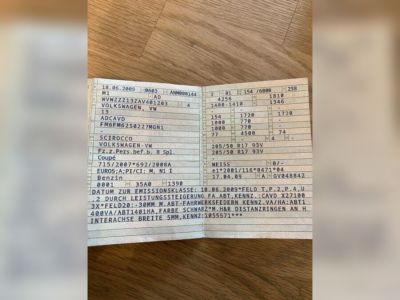 18.06.2009 0603 ANM000144 2 01 154/6000 258
M1 AD 4256 1810
WVWZZZ13ZAV401203 4 1400-1410 1346
VOLKSWAGEN, VW
13 154 1720 1720
ADCAVD 1000 770
FM6FM62S0227MGN1 1000 770
- 77 4500 74
SCIROCCO 205/50 R17 93V
VOLKSWAGEN-VW
Fz.z.Pers.bef.b. 8 Spl. 205/50 R17 93V
Coupé
715/2007*692/2008A WEISS 0/-
EURO5;A;PI/CI; M, N1 I e1*2001/116*0471*04
Benzin 17.04.09 A GV048842
0001 35A0 1390
DATUM ZUR EMISSIONSKLASSE: 18.06.2009*FELD T,P.2,P.4,U
.2 DURCH LEISTUNGSSTEIGERUNG FA.ABT,KENNZ.:CAVD X27100
3X*FELD20:-30MM M.ABT-FAHRWERKSFEDERN KENNZ.VA/HA:ABT1
400VA/ABT1401HA,FARBE SCHWARZ*M.H&R DISTANZRINGEN AN H
INTERACHSE BREITE 5MM,KENNZ:1055571***